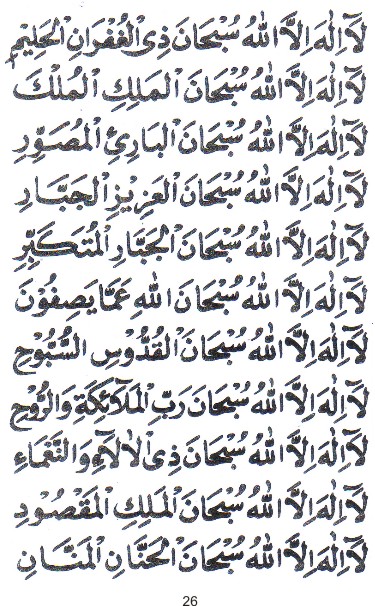 لَآ اِلٰهَ اِلَّا اللهُ سُبْحَانَ ذِى الْغُفْرَانِ الْحَلِيْمِ
لَآ اِلٰهَ اِلَّا اللهُ سُبْحَانَ الْمَلِكِ الْمُلْكَ
لَآ اِلٰهَ اِلَّا اللهُ سُبْحَانَ الْبَارِئِ الْمُصَوِّرِ
لَآ اِلٰهَ اِلَّا اللهُ سُبْحَانَ الْعَزِيْزِ الْجَبَّارِ
لَآ اِلٰهَ اِلَّا اللهُ سُبْحَانَ الْجَبَّارِ الْمُتَكَبِّرِ
لَآ اِلٰهَ اِلَّا اللهُ سُبْحَانَ اللهِ عَمَّا يَصِفُوْنَ
لَآ اِلٰهَ اِلَّا اللهُ سُبْحَانَ الْقُدُّوْسِ السُّبُّوْحِ
لَآ اِلٰهَ اِلَّا اللهُ سُبْحَانَ رَبِّ الْمَلَآئِكَةِ وَالرُّوْحِ
لَآ اِلٰهَ اِلَّا اللهُ سُبْحَانَ ذِى الْاٰلَآءِ وَالنَّعْمَاءِ
لَآ اِلٰهَ اِلَّا اللهُ سُبْحَانَ الْمَلِكِ الْمَقْصُوْدِ
لَآ اِلٰهَ اِلَّا اللهُ سُبْحَانَ الْحَنَّانِ الْمَنَّانِ
26